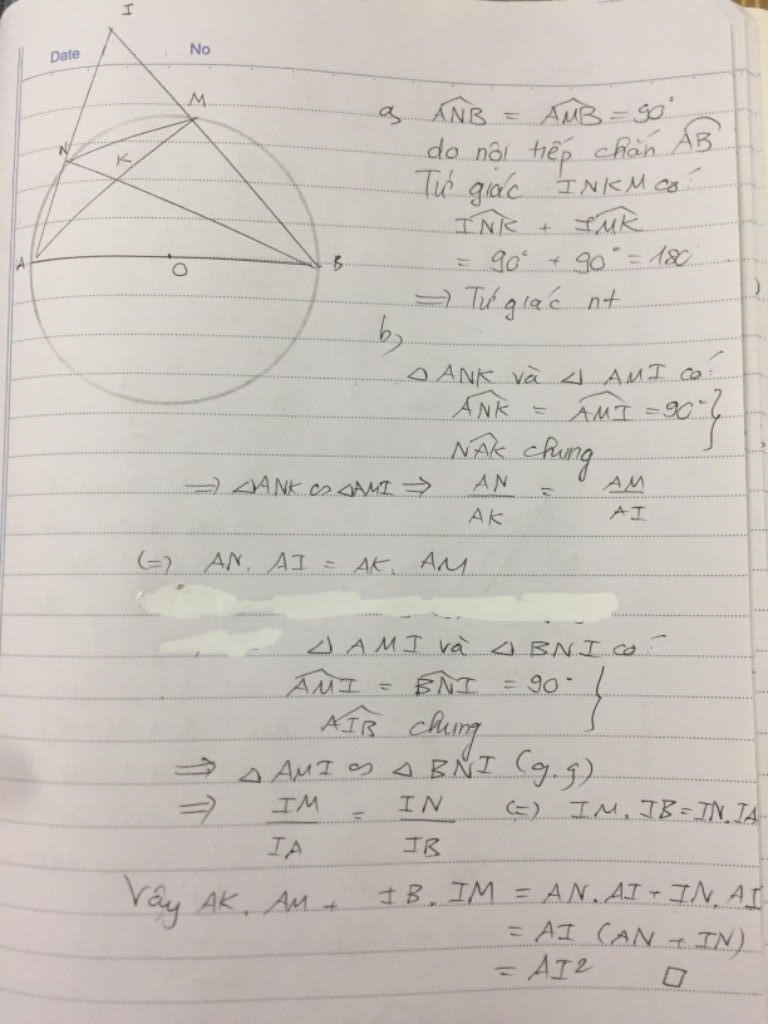 I
Date No
M
N
K
A
O
B
a, ∠ANB = ∠AMB = 90°
do nội tiếp chắn AB
Tứ giác INKM có:
∠INK + ∠IMK
= 90° + 90° = 180
=> Tứ giác nt
b,
△ ANK và △ AMI có:
∠ANK = ∠AMI = 90° }
∠NAK chung
=> △ANK ∽ △AMI => AN/AK = AM/AI
(=) AN. AI = AK. AM
△ AMI và △ BNI có:
∠AMI = ∠BNI = 90° }
∠AIB chung
=> △ AMI ∽ △ BNI (g.g)
=> IM/IA = IN/IB (=) IM. IB = IN. IA
Vậy AK. AM + IB. IM = AN. AI + IN. AI
= AI (AN + IN)
= AI² □